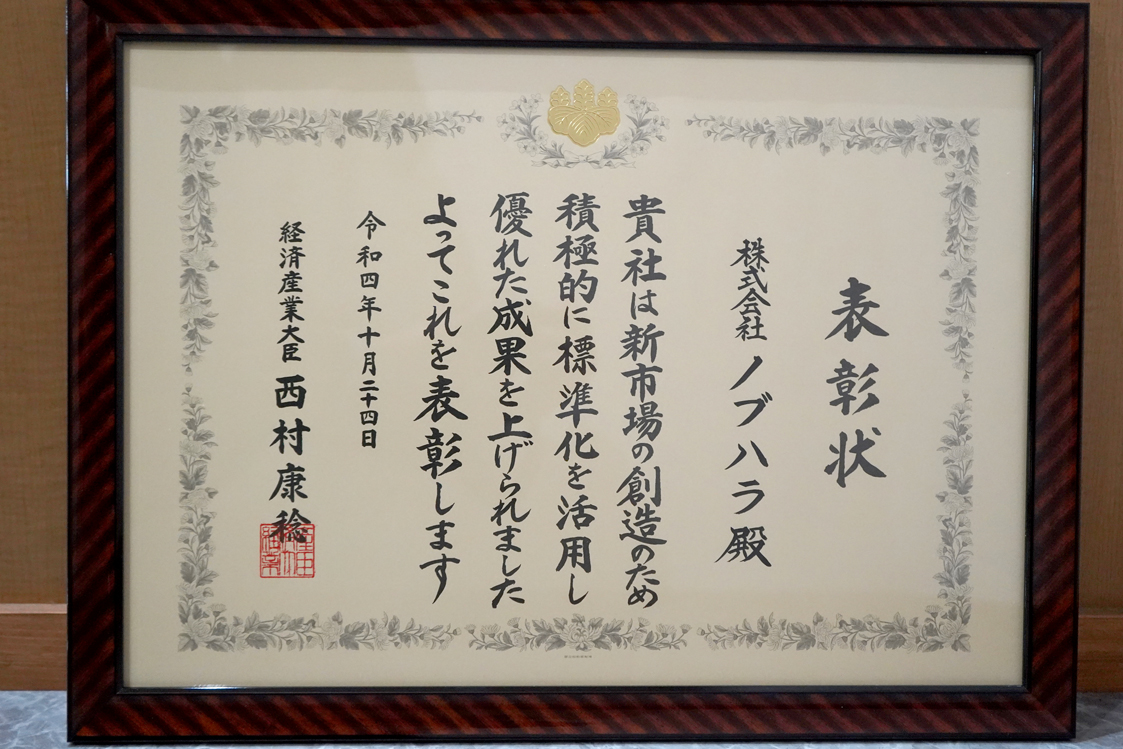 表彰状
株式会社 ノブハラ 殿
貴社は新市場の創造のため
積極的に標準化を活用し
優れた成果を上げられました
よってこれを表彰します
令和四年十月二十四日
経済産業大臣 西村康稔